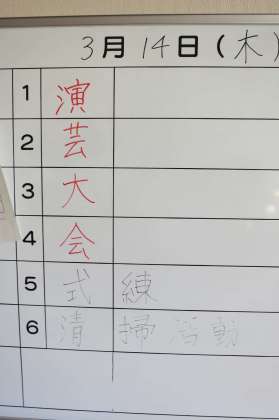 3月14日(木)
1 演
2 芸
3 大
4 会
5 式 練
6 清 掃活動